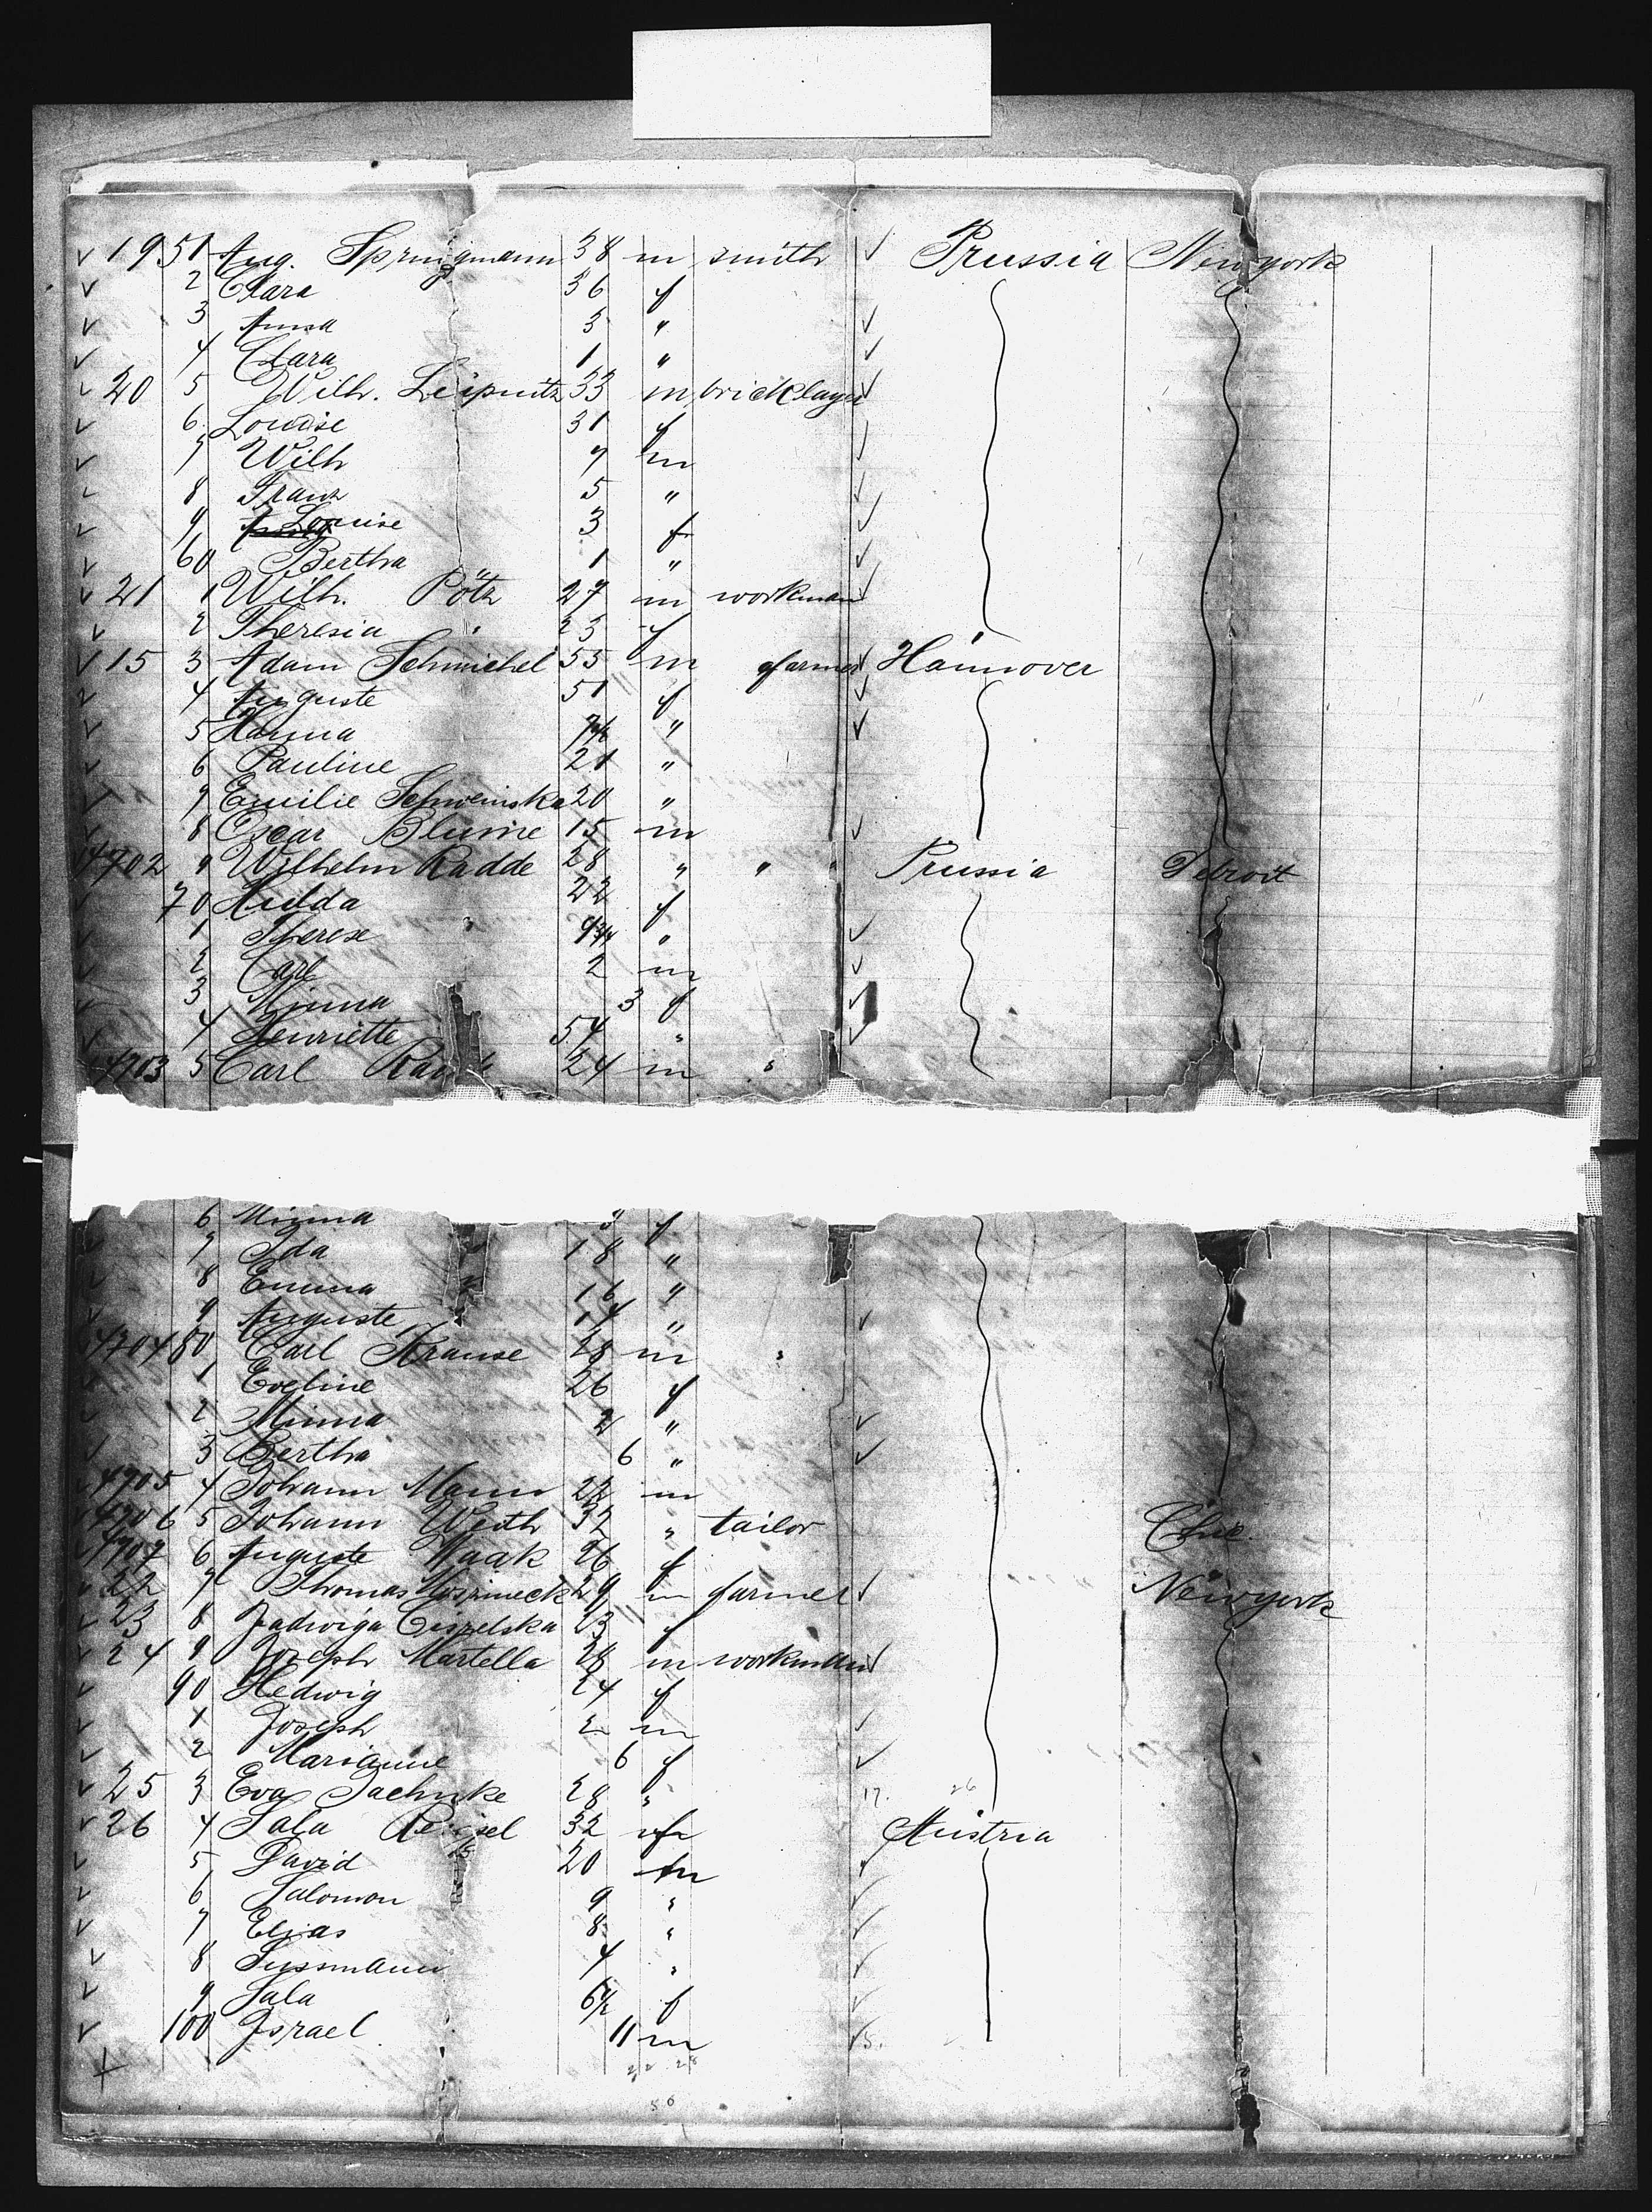 ✓ 19 51 Aug. Springmann 38 m smith ✓ Prussia Newyork
✓ 2 Clara 36 f
✓ 3 Anna 3 " ✓
✓ 4 Clara 1 " ✓
✓ 20 5 Wilh. Leipnitz 33 m bricklayer ✓
✓ 6 Louise 31 f ✓
✓ 7 Wilh 7 m ✓
✓ 8 Franz 5 " ✓
✓ 9 Louise 3 f ✓
✓ 60 Bertha 1 " ✓
✓ 21 1 Wilh. Pötz 27 m workman ✓
✓ 2 Theresia 23 f
✓ 15 3 Adam Schmichel 55 m farmer ✓ Hannover
✓ 4 Auguste 51 f ✓
✓ 5 Hanna " ✓
✓ 6 Pauline 21 "
✓ 7 Emilie Schweinska 20 "
✓ 8 Oscar Blume 15 m ✓
4702 9 Wilhelm Radde 28 " " " Prussia Detroit
70 Hulda 22 f
1 Therese " ✓
2 Carl 2 m ✓
3 Minna 3 f ✓
4 Henriette 54 " ✓
4703 5 Carl 24 m "
6 Minna f
7 Ida 18 "
8 Emma 16 "
9 Auguste 14 " ✓
4704 80 Carl Krause 28 m "
1 Eveline 26 f
2 Minna 2 " ✓
3 Bertha 6 " ✓
4705 4 Johann Mann 22 m
4706 5 Johann Werth 32 " tailor Chic.
4707 6 Auguste Waak 26 f
22 7 Thomas 29 m farmer ✓ Newyork
23 8 Jadwiga Ciszelska 23 f
24 9 Joseph Martella 28 m workman ✓
✓ 90 Hedwig 24 f
✓ 1 Joseph 2 m ✓
✓ 2 Marianne 6 f ✓
✓ 25 3 Eva Jaehnke 28 " 17. 26
✓ 26 4 Sala 32 f Austria
✓ 5 David 20 m ✓
✓ 6 Salomon 9 " ✓
✓ 7 Elias 8 " ✓
✓ 8 Sussmann 4 " ✓
✓ 9 Sala 6 1/2 f ✓
✓ 100 Israel 11 m ✓ 5.
22 28
50